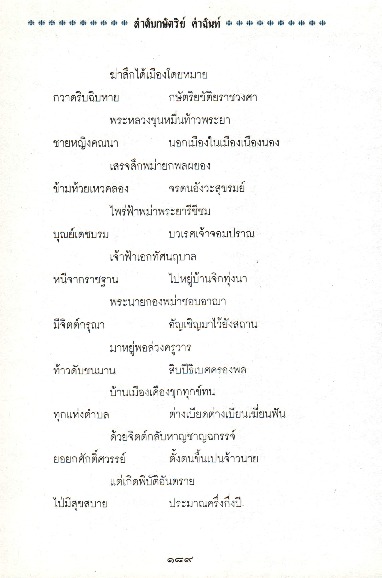 ลำดับกษัตริย์ คำฉันท์
ฆ่าสึกได้เมืองโดยหมาย
กวาดริบฉิบหาย กษัตริยขัติยราชวงศา
พระหลวงขุนหมื่นท้าวพระยา
ชายหญิงคณนา นอกเมืองในเมืองเนืองนอง
เสรจสึกพม่ายกพลผยอง
ข้ามห้วยเหวคลอง จรดนอังวะสุขรมย์
ไพร่ฟ้าพม่าพระยารีชิชม
บุณย์เดชบรม บวเรศเจ้าจอมปราณ
เจ้าฟ้าเอกทัศนฤบาล
หนีจากราชฐาน ไปหยู่บ้านจิกทุ่งนา
พระนายกองพม่าชอบอาฌา
มีจิตต์กรุณา อัญเชิญมาไว้ยังสถาน
มาหยู่พอล่วงครูวาร
ท้าวดับชนมาน สิบปีธิเบศครองพล
บ้านเมืองเคืองขุกทุกข์ทน
ทุกแห่งตำบล ต่างเบียดต่างเบียนเฆี่ยนฟัน
ด้วยจิตต์กลับหาญชาญฉกรรจ์
ยอยกศักดิ์ศวรรย์ ตั้งตนขึ้นเปนจ้าวนาย
แต่เกิดพิบัติอันตราย
ไป่มีสุขสบาย ประมาณครึ่งกึ่งปี
๑๘๙